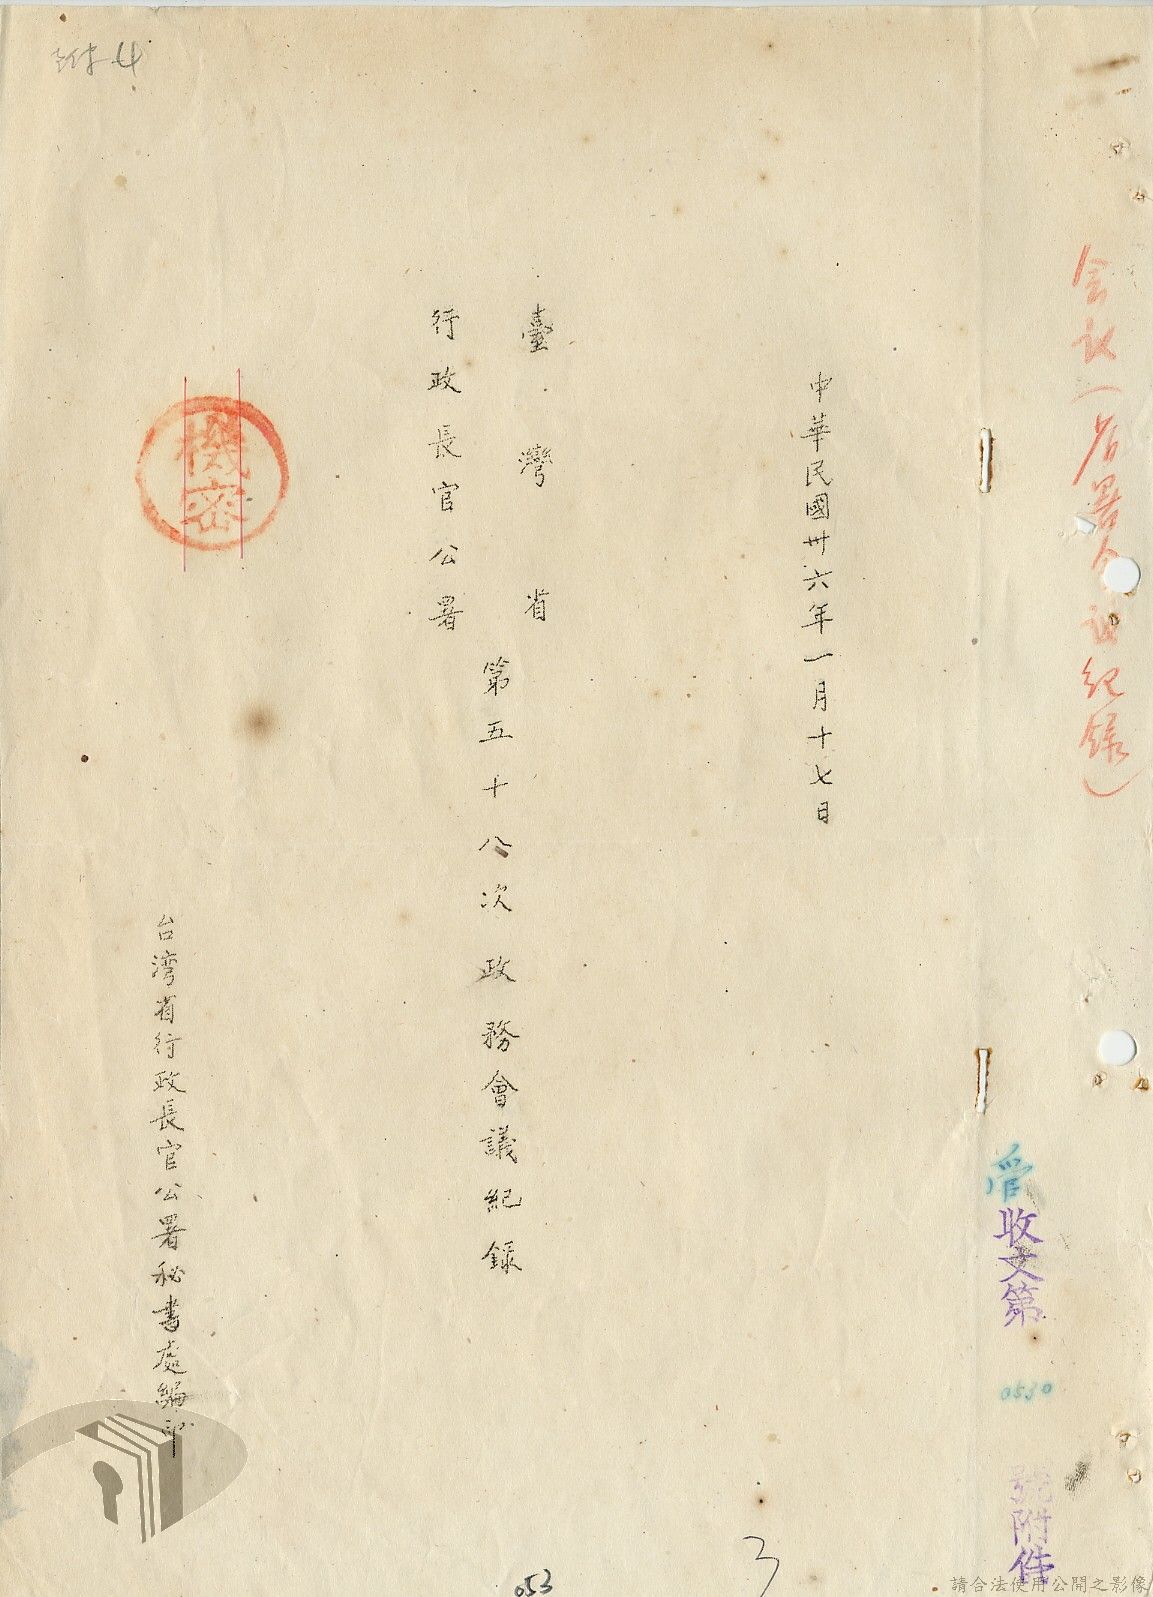 会議(省署会議紀錄)
管
收文第
0530
號附件
中華民國卅六年一月十七日
臺灣省
行政長官公署
第五十八次政務會議紀錄
機密
台湾省行政長官公署秘書處編印
附件4
3
053
請合法使用公開之影像